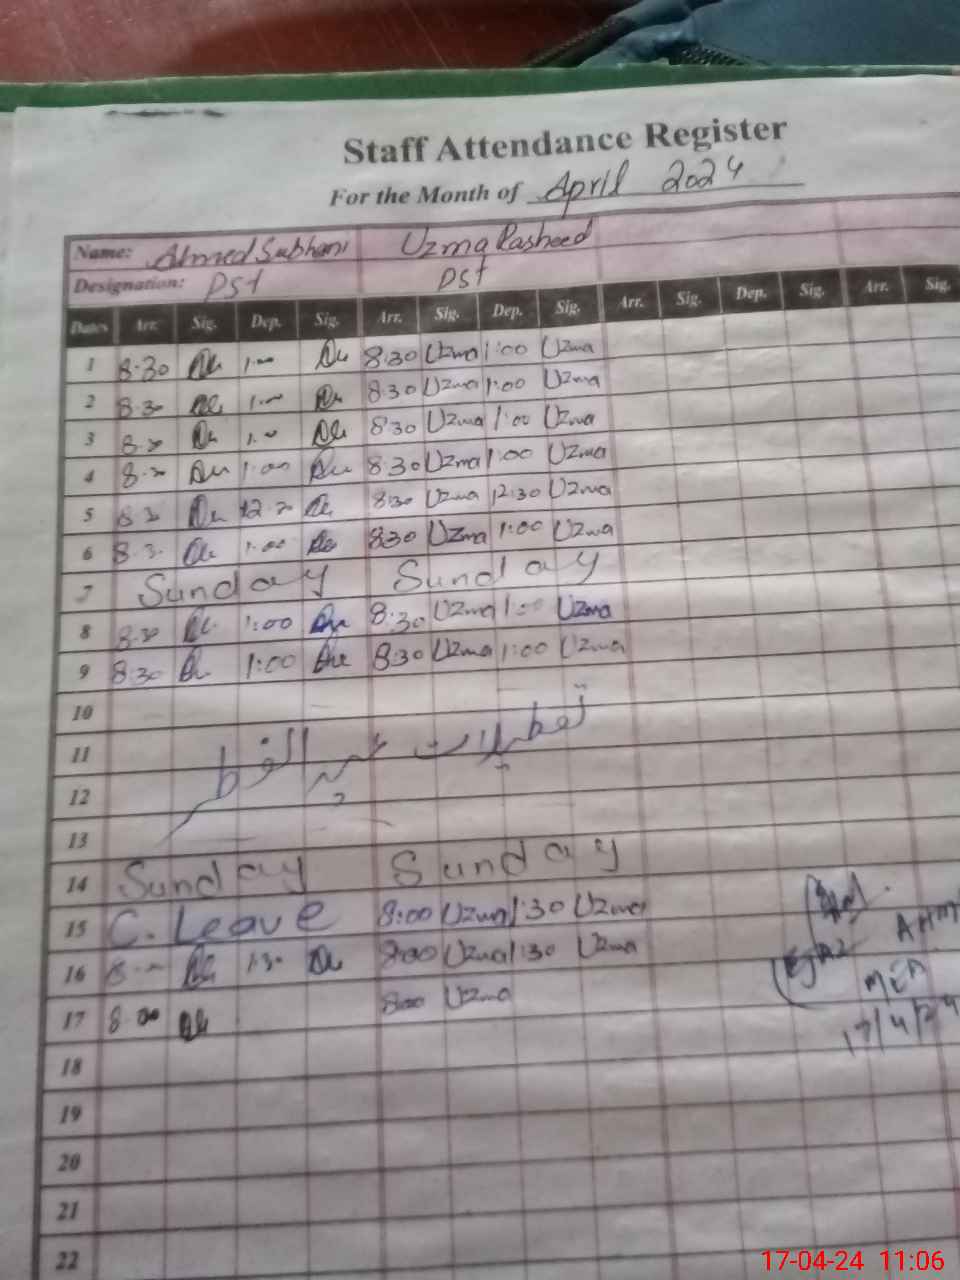 Staff Attendance Register
For the Month of April 2024
Name: Ahmed Subhani Uzma Rasheed
Designation: PST PST
Dates Arr. Sig. Dep. Sig. Arr. Sig. Dep. Sig. Arr. Sig. Dep. Sig. Arr. Sig.
1 8:30 1:00 8:30 Uzma 1:00 Uzma
2 8:30 1:00 8:30 Uzma 1:00 Uzma
3 8:30 1:00 8:30 Uzma 1:00 Uzma
4 8:30 1:00 8:30 Uzma 1:00 Uzma
5 8:30 12:30 8:30 Uzma 12:30 Uzma
6 8:30 1:00 8:30 Uzma 1:00 Uzma
7 Sunday Sunday
8 8:30 1:00 8:30 Uzma 1:00 Uzma
9 8:30 1:00 8:30 Uzma 1:00 Uzma
10
11 تعطیلات عید الفطر
12
13
14 Sunday Sunday
15 C. Leave 8:00 Uzma 1:30 Uzma
16 8:00 1:30 8:00 Uzma 1:30 Uzma
17 8:00 8:00 Uzma
MEA
17/4/24
18
19
20
21
22
17-04-24 11:06